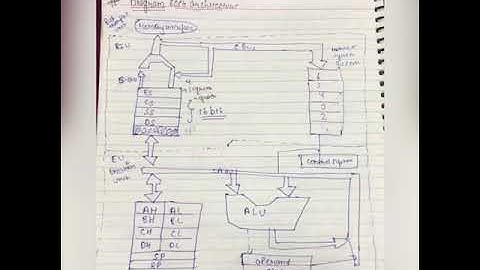 # Diagram 8086 architecture
Memory interface
BIU
C Bus
B-Bus
6
5
4
3
2
1
ES
CS
SS
DS
16 bit
EU
Control System
A Bus
AH AL
BH BL
CH CL
DH DL
SP
BP
ALU
operand